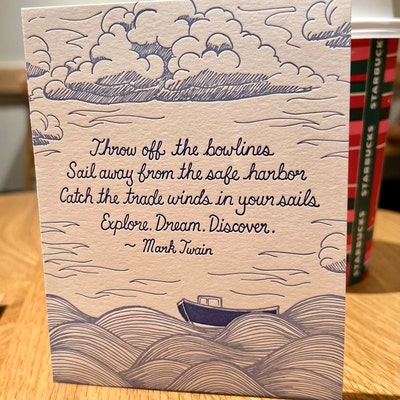 Throw off the bowlines
Sail away from the safe harbor
Catch the trade winds in your sails
Explore. Dream. Discover.
~ Mark Twain
STARBUCKS
STARBUCKS
STARBUCKS